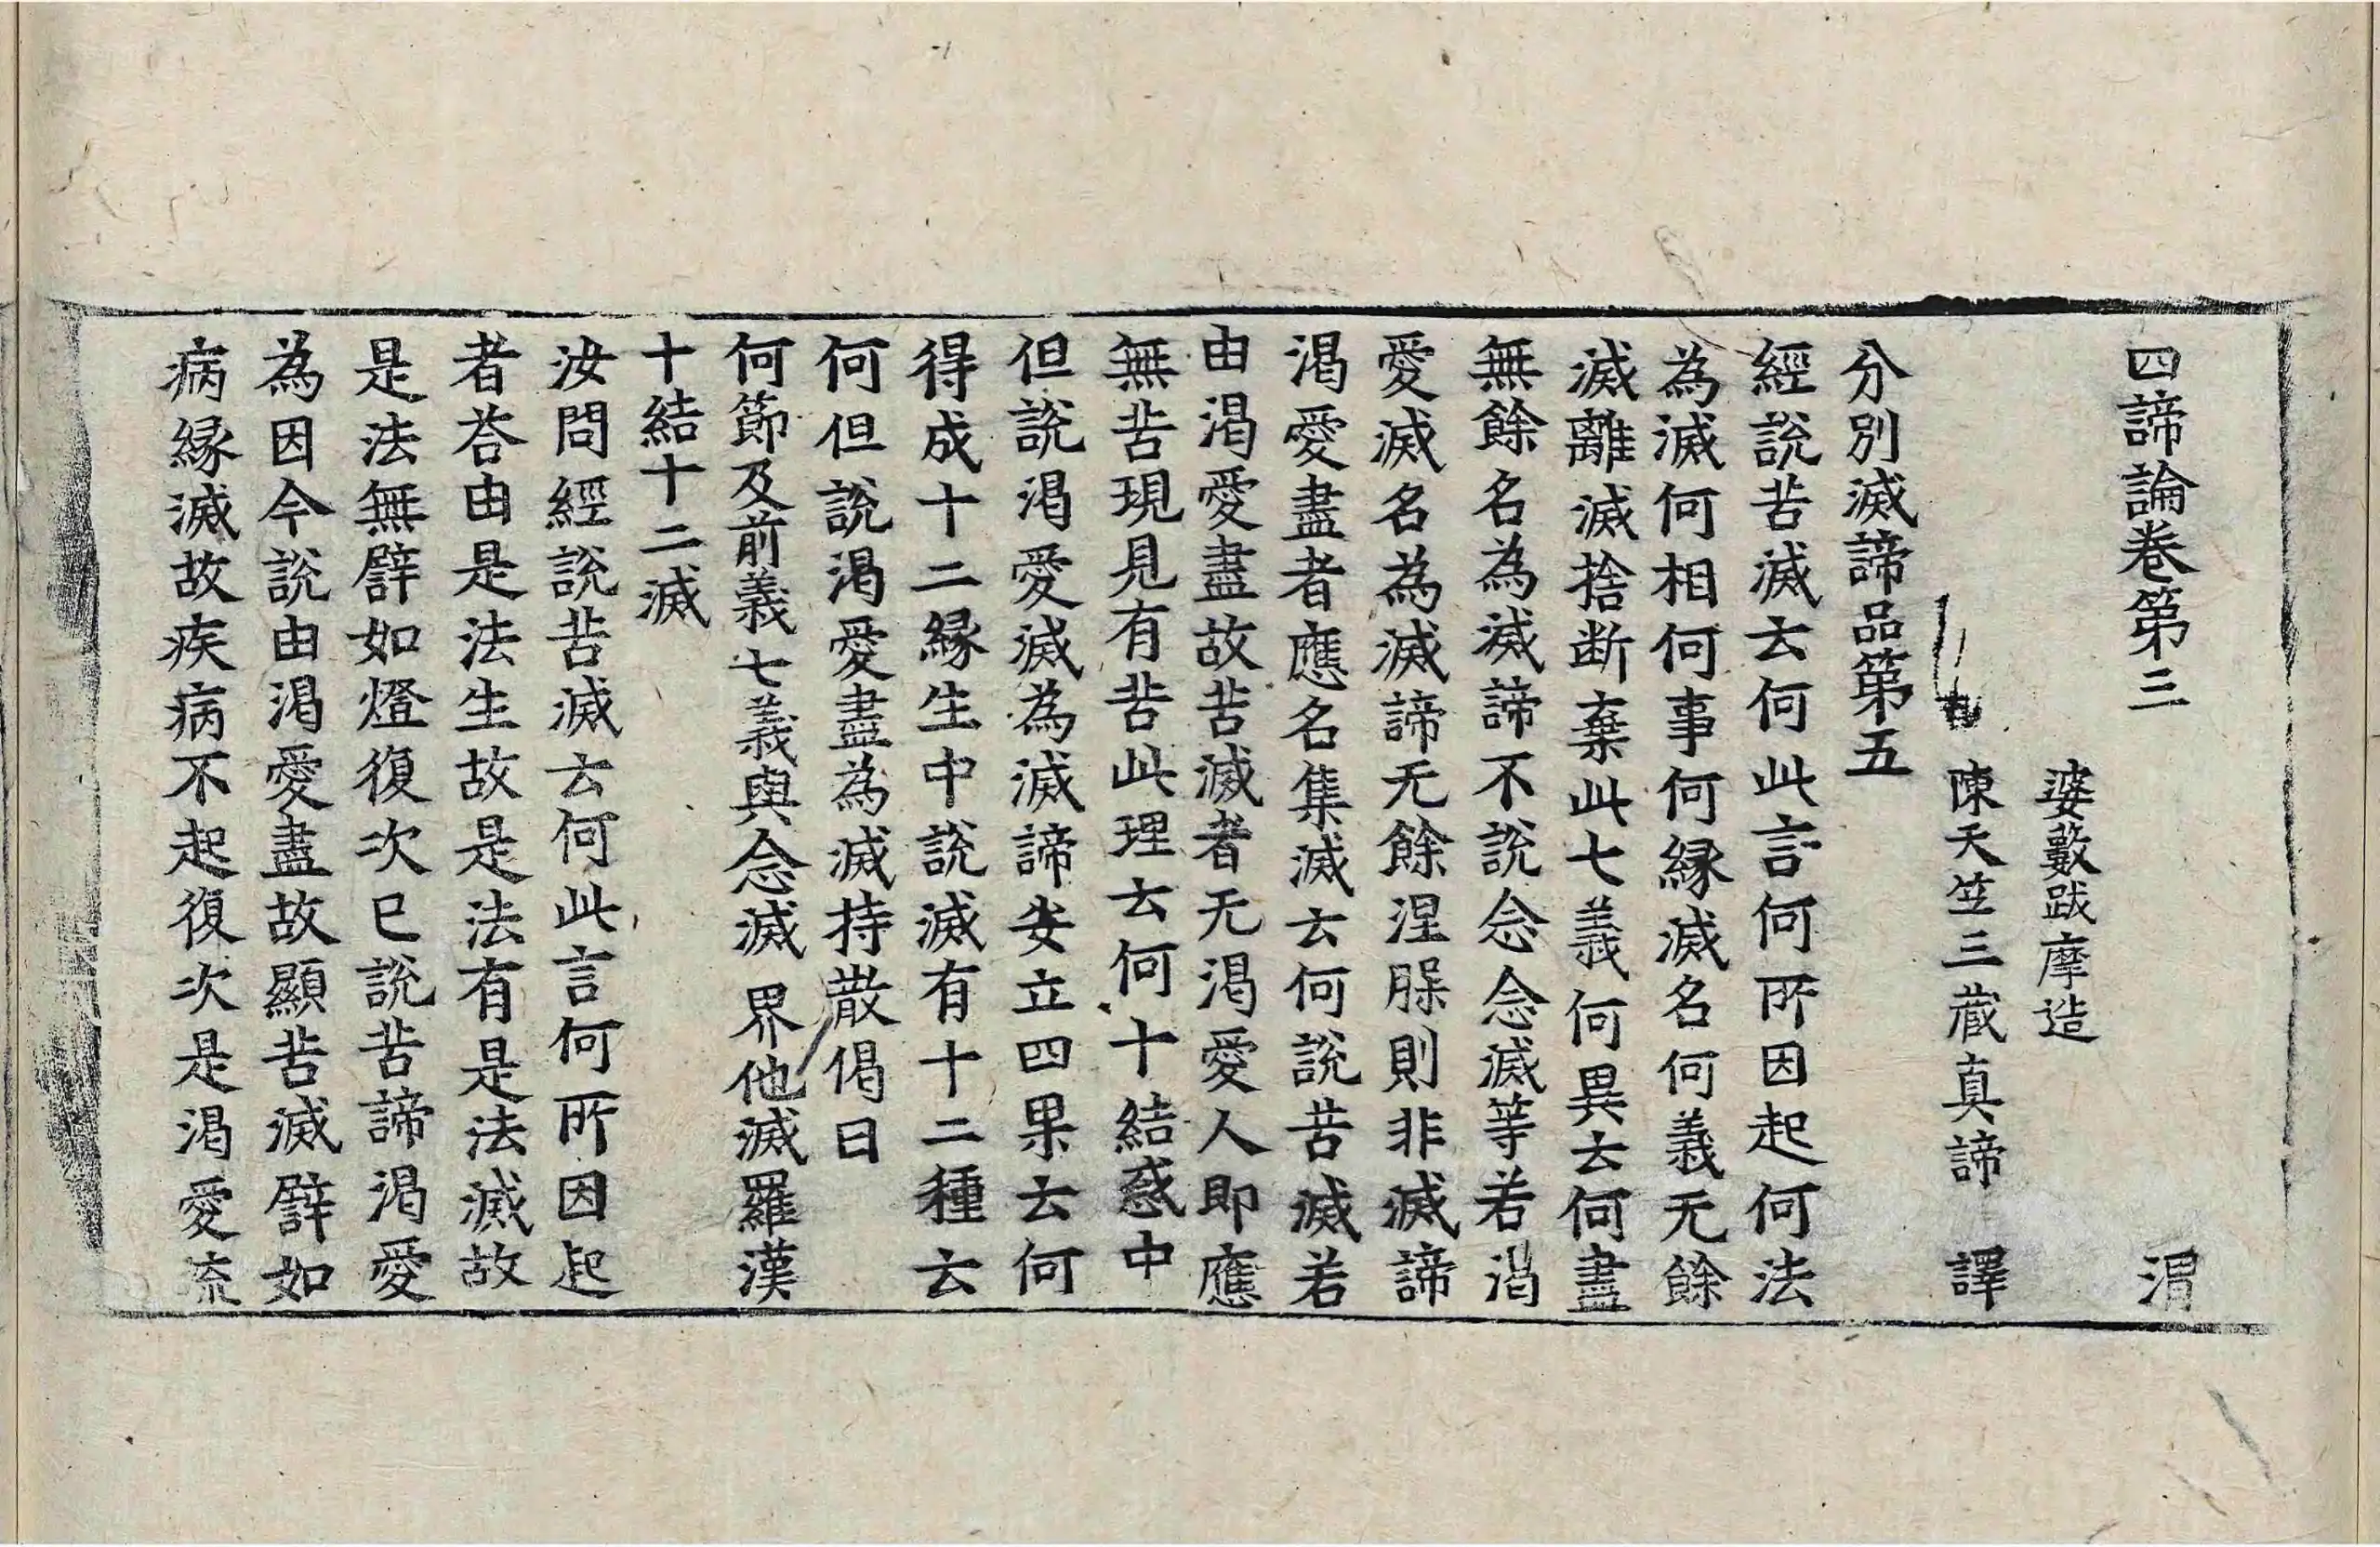 四諦論卷第三　渭
婆藪跋摩造
陳天竺三藏真諦　譯
分別滅諦品第五
經說苦滅云何此言何所因起何法
為滅何相何事何緣滅名何義无餘
滅離滅捨断棄此七義何異云何盡
無餘名為滅諦不說念念滅等若渴
愛滅名為滅諦无餘涅槃則非滅諦
渴愛盡者應名集滅云何說苦滅若
由渴愛盡故苦滅者无渴愛人即應
無苦現見有苦此理云何十結惑中
但說渴愛滅為滅諦安立四果云何
得成十二緣生中說滅有十二種云
何但說渴愛盡為滅持散偈曰
何節及前義七義與念滅　界他滅羅漢
十結十二滅
汝問經說苦滅云何此言何所因起
者荅由是法生故是法有是法滅故
是法無譬如燈復次已說苦諦渴愛
為因今說由渴愛盡故顯苦滅譬如
病緣滅故疾病不起復次是渴愛流